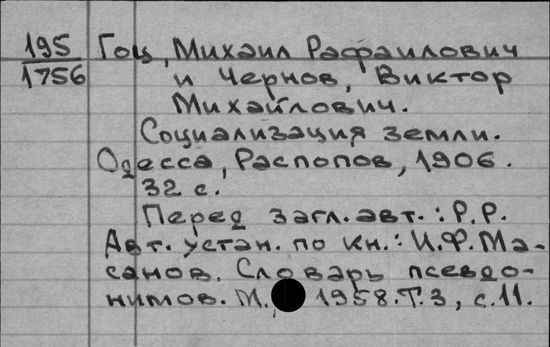 195 Гоц, Михаил Рафаилович
1756 и Чернов, Виктор
Михайлович.
Социализация земли.
Одесса, Распопов, 1906.
32 с.
Перед загл. авт.: Р.Р.
Авт. устан. по кн.: И.Ф. Ма-
санов. Словарь псевдо-
нимов. М., 1958. Т.3, с.11.